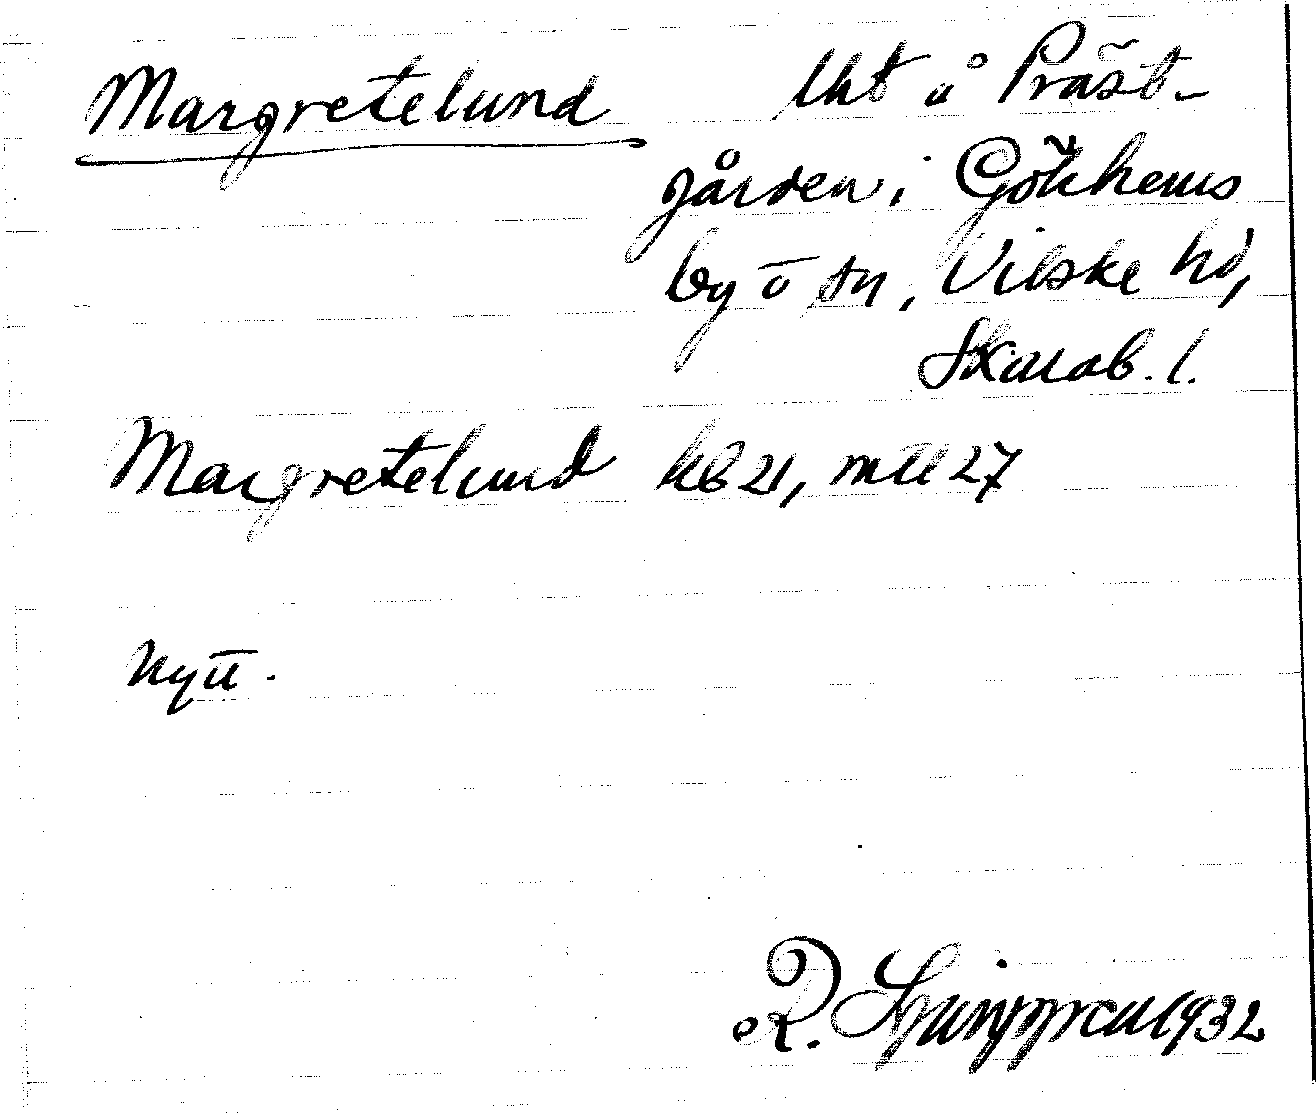 Margretelund lht å Präst-
gården i Gökhems
by o sn, Vilske hd,
Skarab. l.
Margretelund kb 21, mtl 27
Nytt.
R. 1932